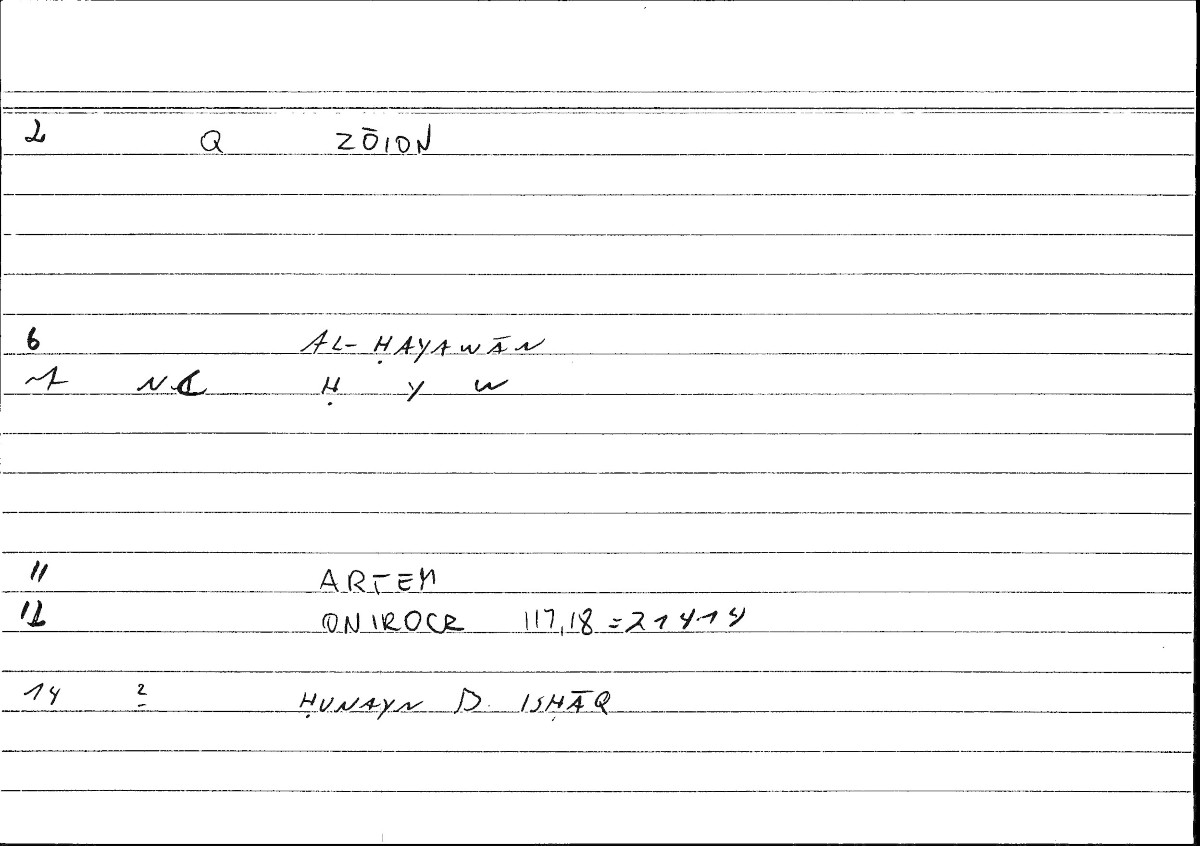 2 Q ZŌION
6 AL-ḤAYAWĀN
Ḥ Y W
11 ARTEM
12 ONIROCR 117,18 = 21414
14 2 ḤUNAYN B. ISḤĀQ